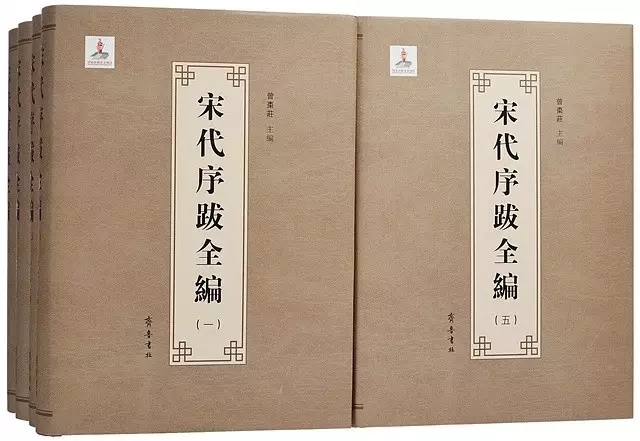 宋代序跋全编
(一)
曾棗莊 主编
齊魯書社
宋代序跋全编
(五)
曾棗莊 主编
齊魯書社